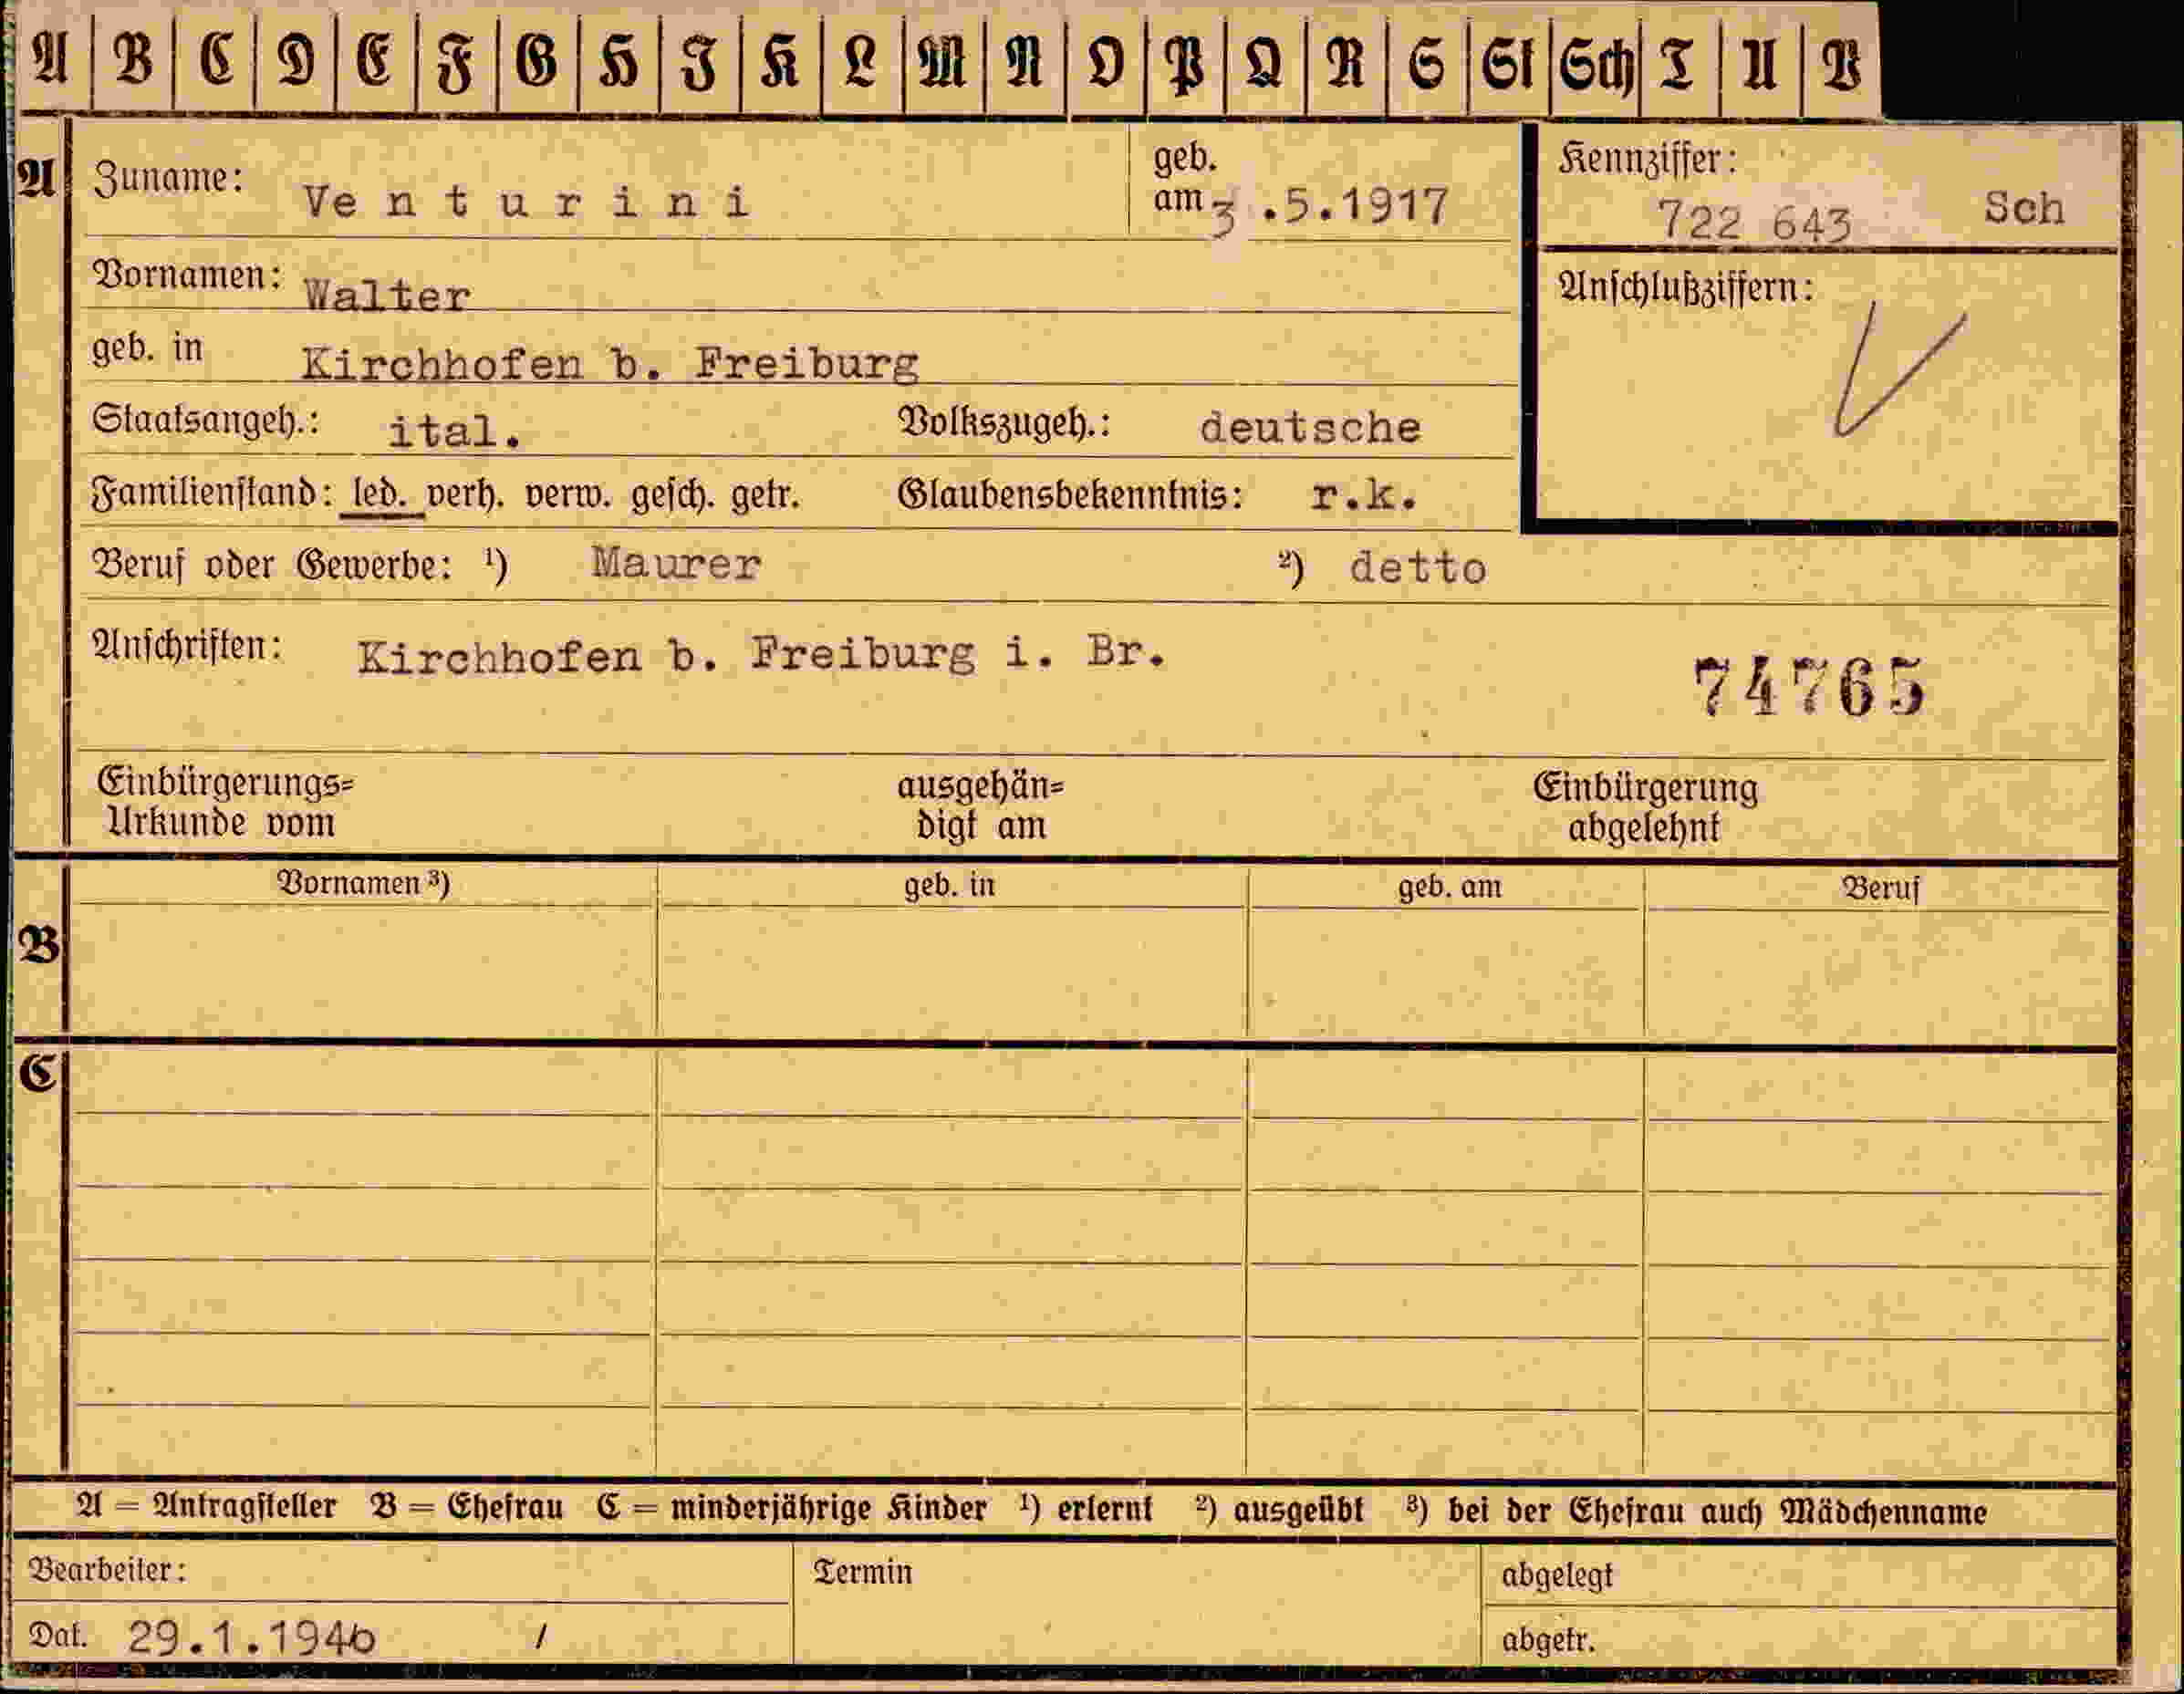 A B C D E F G H I K L M N O P Q R S St Sch T U V
A Zuname: Venturini geb. am 3.5.1917 Kennziffer: 722 643 Sch
Vornamen: Walter
Anschlußziffern: V
geb. in Kirchhofen b. Freiburg
Staatsangeh.: ital. Volkszugeh.: deutsche
Familienstand: led. verh. verw. gesch. getr. Glaubensbekenntnis: r.k.
Beruf oder Gewerbe: ¹) Maurer ²) detto
Anschriften: Kirchhofen b. Freiburg i. Br.
74765
Einbürgerungs= ausgehän= Einbürgerung
Urkunde vom digt am abgelehnt
Vornamen ³) geb. in geb. am Beruf
B
C
A = Antragsteller B = Ehefrau C = minderjährige Kinder ¹) erlernt ²) ausgeübt ³) bei der Ehefrau auch Mädchenname
Bearbeiter: Termin abgelegt
Dat. 29.1.1940 / abgetr.